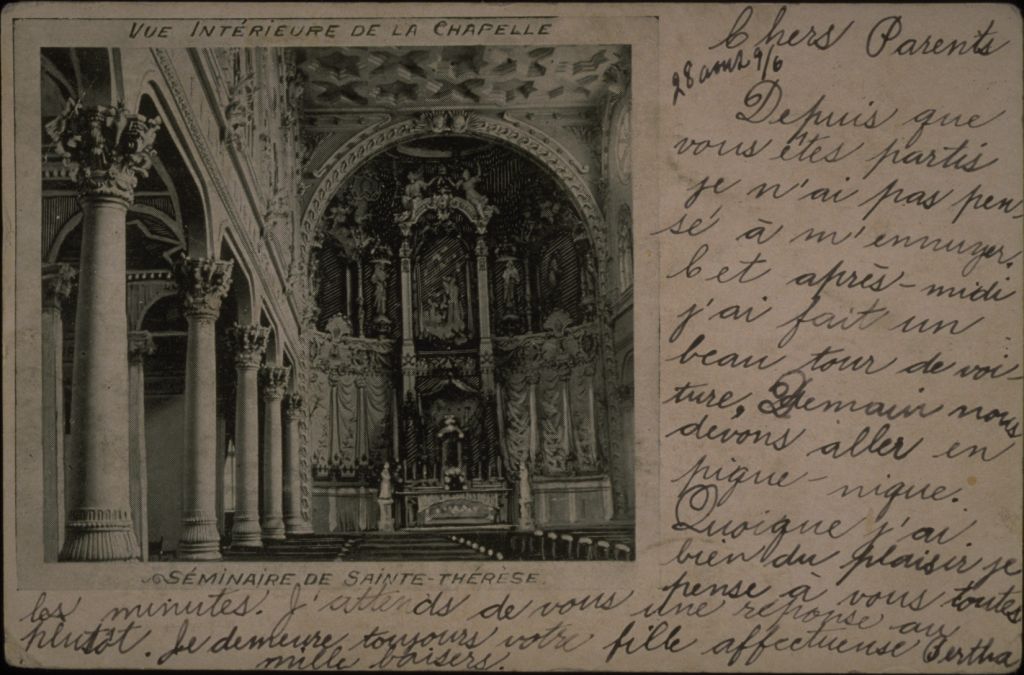 VUE INTÉRIEURE DE LA CHAPELLE
SÉMINAIRE DE SAINTE-THÉRÈSE
Chers Parents
28 aout 9/6
Depuis que
vous êtes partis
je n'ai pas pen-
sé à m'ennuyer.
Cet après-midi
j'ai fait un
beau tour de voi-
ture. Demain nous
devons aller en
pique-nique.
Quoique j'ai
bien du plaisir je
pense à vous toutes
les minutes. J'attends de vous une reponse au
plutôt. Je demeure toujours votre fille affectueuse Bertha
mille baisers.